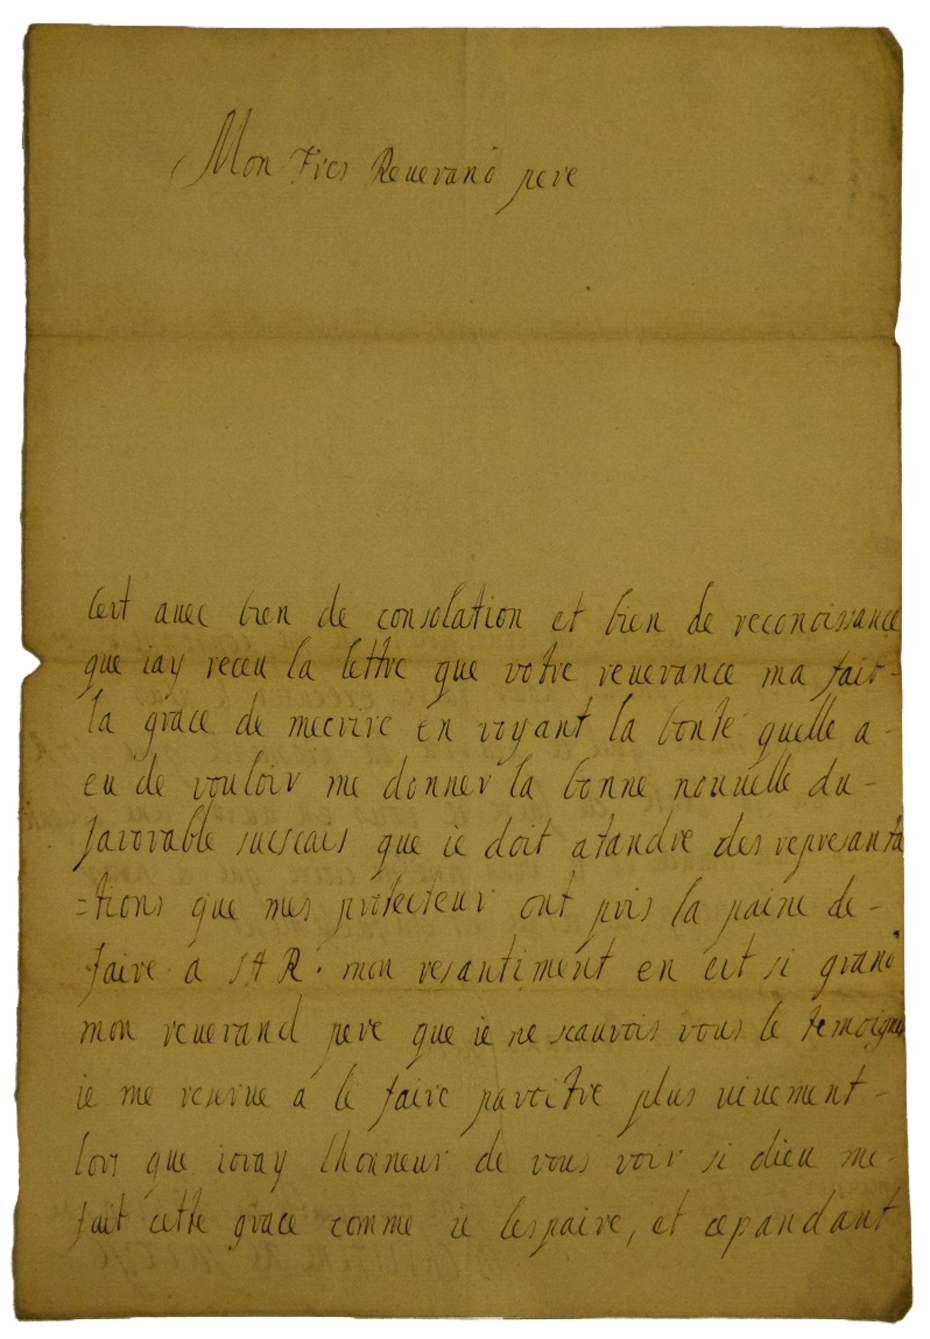 Mon tres Reuerand pere
Cest auec bien de consolation et bien de reconoissance
que iay receu la lettre que votre reuerance ma fait-
la grace de mecrire en voyant la bonté quelle a-
eu de vouloir me donner la bonne nouuelle du-
favorable sucscais que ie doit atandre des represanta
=tions que mes protecteur ont pris la paine de-
faire a SAR. mon resantiment en est si grand
mon reuerand pere que ie ne scauvois vous le temoigner
ie me reserue a le faire paroitre plus uiuement-
lors que ioray lhonneur de vous voir si dieu me-
fait cette grace comme ie lespaire, et cepandant